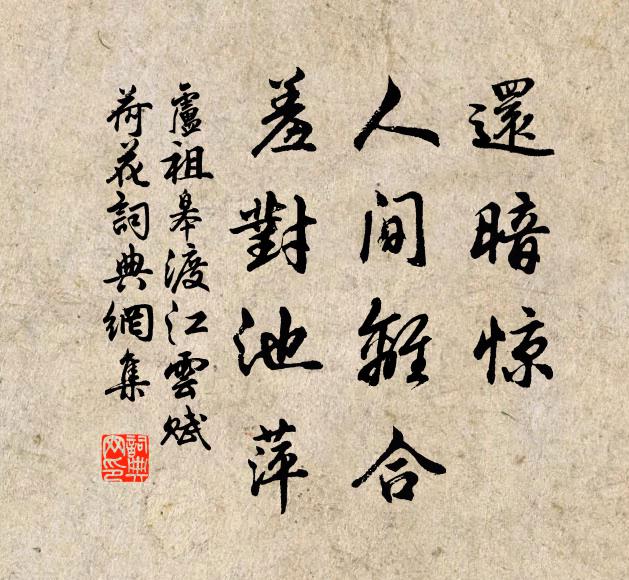 還暗惊
人间離合
羞對池萍
盧祖皋渡江雲賦
荷花詞典網集
詞典網印